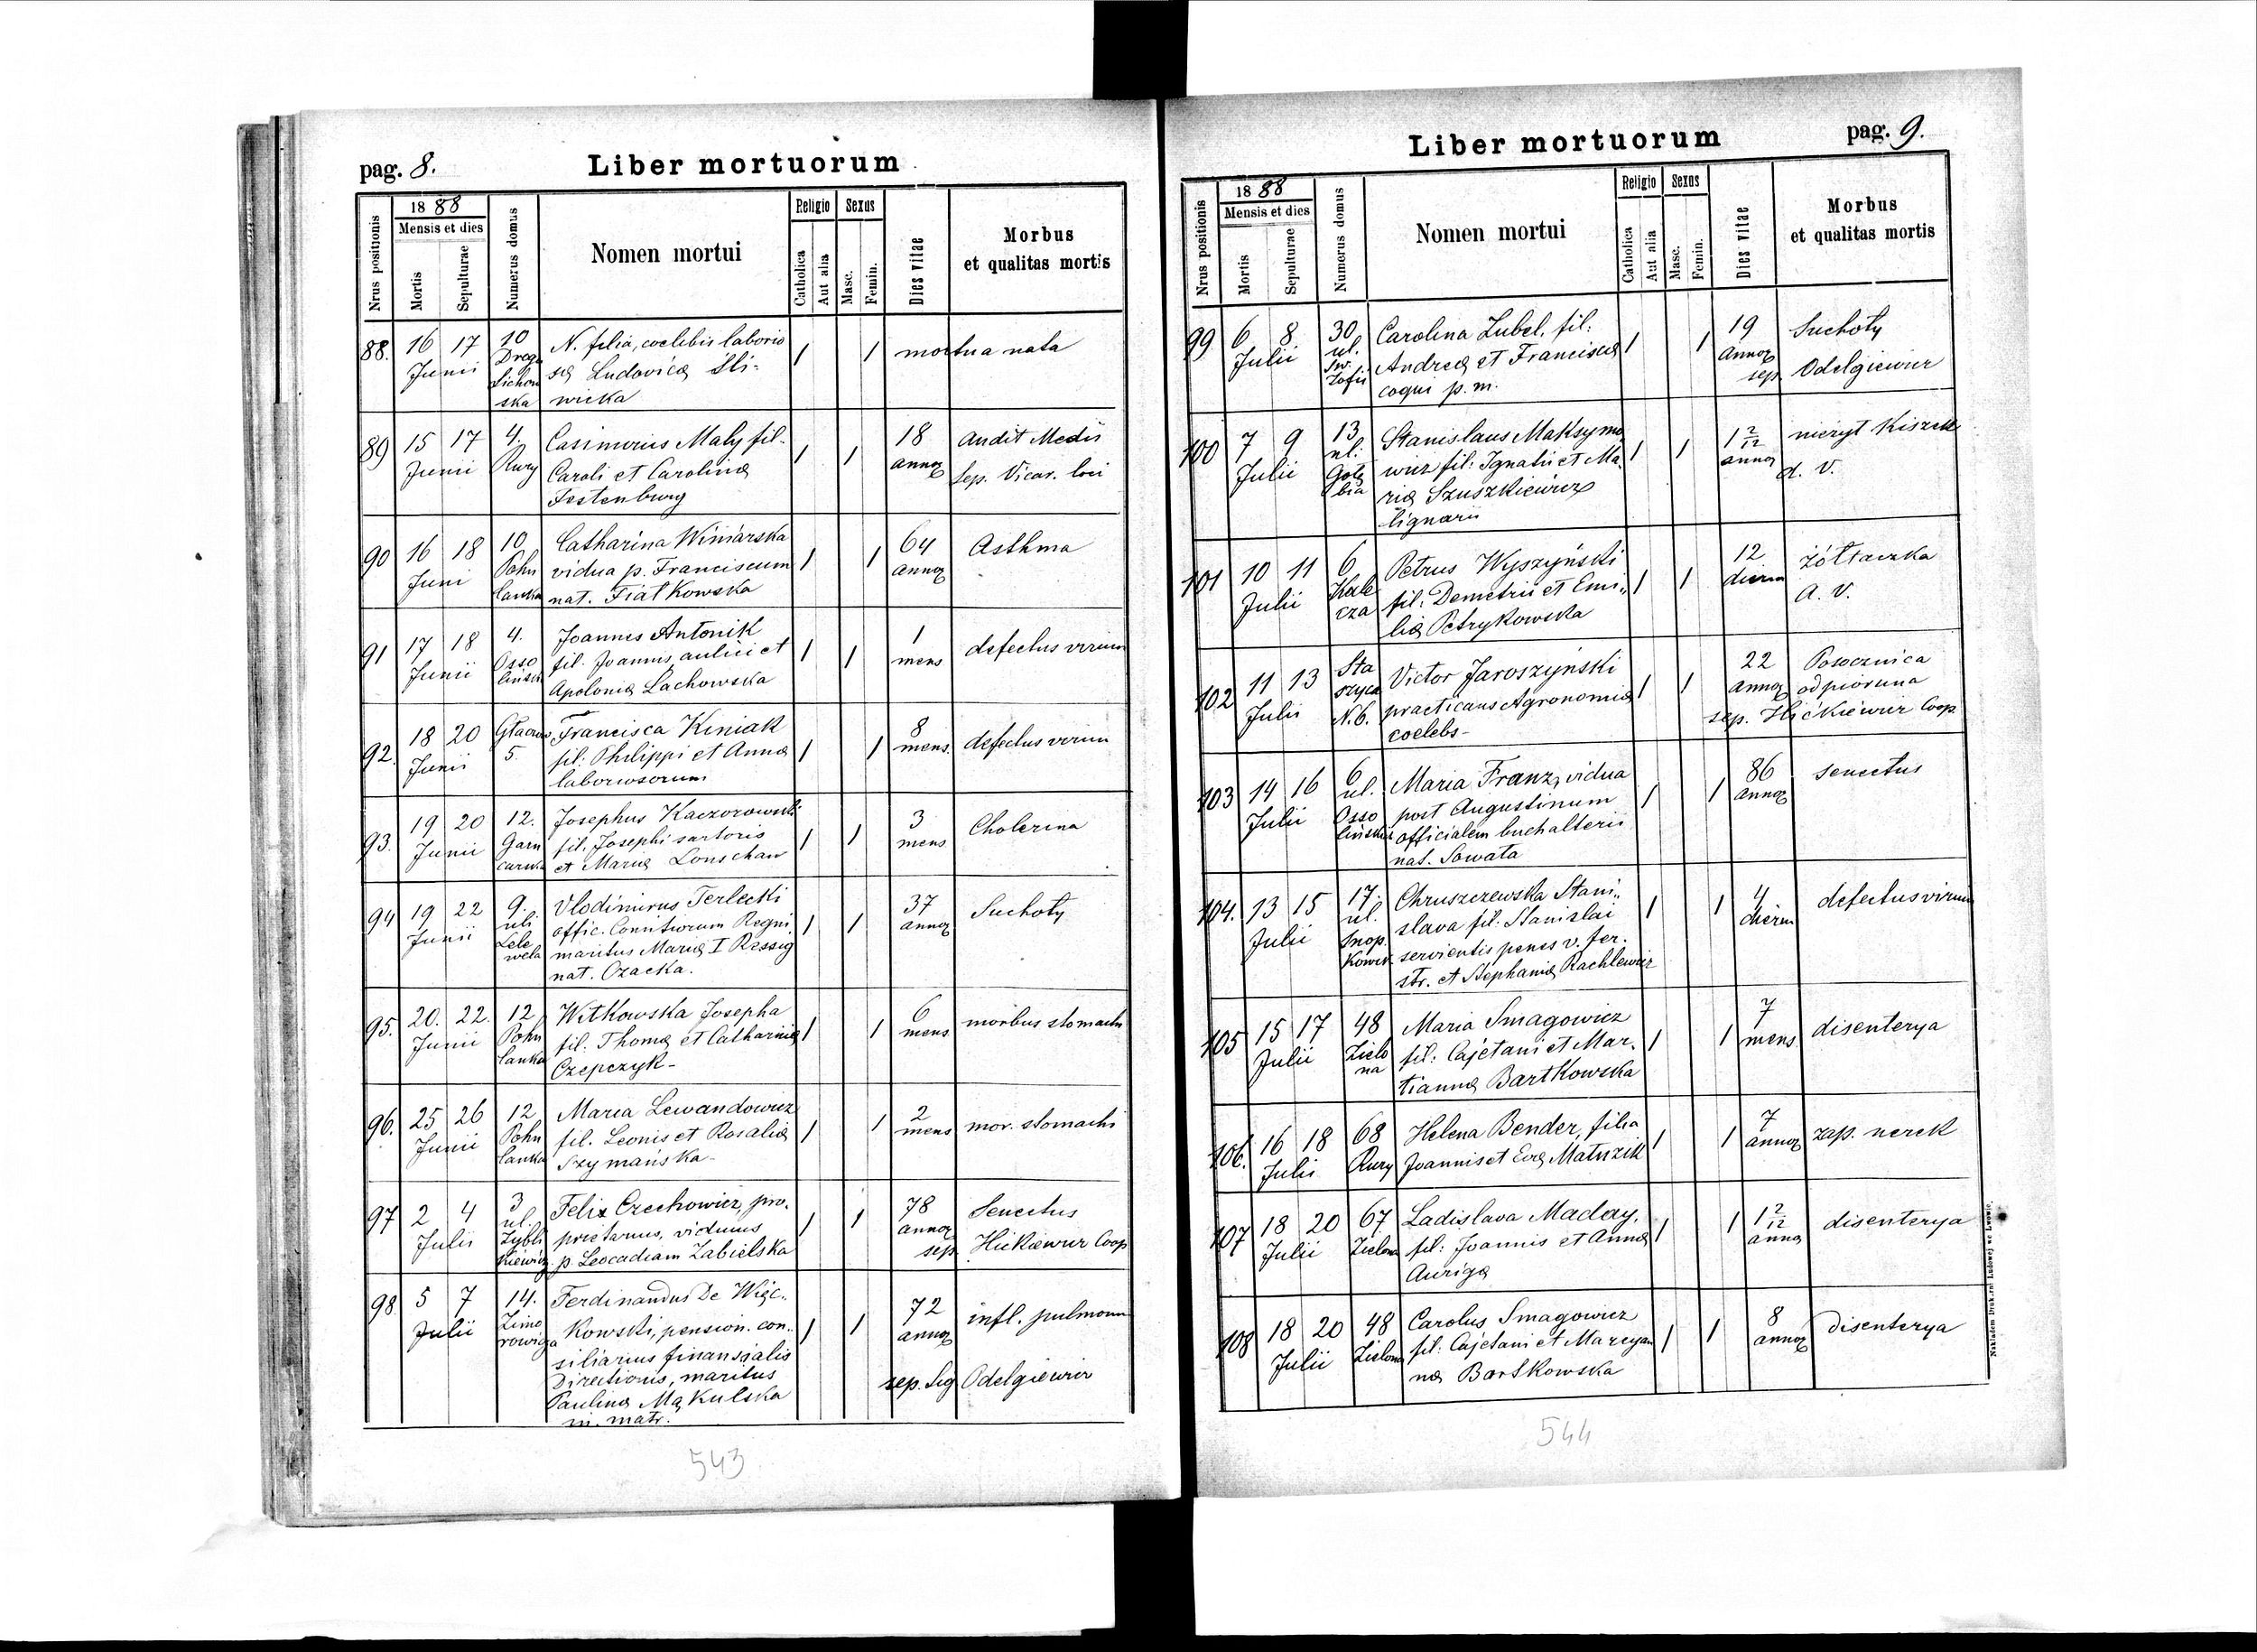 pag. 8.
Liber mortuorum
Nrus positionis
1888
Mensis et dies
Mortis
Sepulturae
Numerus domus
Nomen mortui
Religio
Catholica
Aut alia
Sexus
Masc.
Femin.
Dies vitae
Morbus
et qualitas mortis
88. 16 17 10 N. filia, coelebis laborio
Junii sę Ludovicę Śli-
wicka
1 1 mortua nata
89 15 17 4. Casimirus Mały fil.
Junii Rury Caroli et Carolinę
Festenburg
1 1 18 annoꝝ
Sep. Vicar. loci
90 16 18 10 Catharina Winiarska
Juni Pohu vidua p. Franciscum
lanka nat. Fiałkowska
1 1 64 annoꝝ Asthma
91 17 18 4. Joannes Antonik
Junii Osso fil. Joannis, aulici et
lińsk Apolonię Lachowska
1 1 1 mens defectus virium
92. 18 20 Francisca Kiniak
Junii 5. fil: Philippi et Annę
laboriosorum
1 1 8 mens. defectus virium
93. 19 20 12. Josephus Kaczorowski
Junii Garn fil. Josephi sartoris
carska et Marię Lonschan
1 1 3 mens Cholerina
94 19 22 9. Vlodimirus Terlecki
Junii uli offic. Comitiorum Regni,
Lele maritus Marię I Ressig
wela nat. Czacka.
1 1 37 annoꝝ Suchoty
95. 20. 22. 12 Witkowska Josepha
Junii Pohu fil: Thomę et Catharinę
lanka Czepczyk-
1 1 6 mens morbus stomachi
96. 25 26 12 Maria Lewandowicz
Junii Pohu fil. Leonis et Rosalię
lanka Szymańska-
1 1 2 mens mor. stomachi
97 2 4 3 Felix Czechowicz, pro-
Julii ul. prietarius, viduus
Zybli kiewicz p. Leocadiam Zabielska
1 1 78 annoꝝ Senectus
sep. Hickiewicz Coop
98. 5 7 14. Ferdinandus De Więc-
Julii Zimo kowski, pension. con-
rowicza siliarius finansialis
Directionis, maritus
Paulinę Mąkulska
m. matr.
1 1 72 annoꝝ infl. pulmonum
sep. Odelgiewicz
543
Liber mortuorum
pag. 9.
Nrus positionis
1888
Mensis et dies
Mortis
Sepulturae
Numerus domus
Nomen mortui
Religio
Catholica
Aut alia
Sexus
Masc.
Femin.
Dies vitae
Morbus
et qualitas mortis
99 6 8. 30 Carolina Zubel, fil:
Julii ul. Andreę et Franciscę
Św. Zofii coqui p. m.
1 1 19 annoꝝ Suchoty
sep. Odelgiewicz
100 7 9 13 Stanislaus Maksymo
Julii ul. wicz fil: Ignatii et Ma-
Gołę bia rię Szuszkiewicz
lignarii
1 1 1 2/12 anno nieżyt kiszek
d. V.
101 10 11 6 Petrus Wyszyński
Julii Kale fil: Demetrii et Emi-
cza lię Petrykowska
1 1 12 dierum żółtaczka
A. V.
102 11 13 Sta Victor Jaroszyński
Julii szyca practicans Agronomię
N. 6. coelebs-
1 1 22 annoꝝ Posocznica
od pioruna
sep. Hickiewicz Coop.
103 14 16 6 Maria Franz, vidua
Julii ul. post Augustinum
Osso officialem buchalterii
lińskich nat. Sowata
1 1 86 annoꝝ senectus
104. 13 15 17. Chruszczewska Stani-
Julii ul. slava fil. Stanislai
Snop servientis penes v. fer.
kowsk. str. et Stephanię Rachlewicz
1 1 4 dierum defectus virium
105 15 17 48 Maria Smagowicz
Julii Zielo fil: Cajetani et Mar-
na tiannę Bartkowska
1 1 7 mens disenterya
106. 16 18 68 Helena Bender, filia
Julii Rury Joannis et Evę Matuzik
1 1 7 annoꝝ zap. nerek
107 18 20 67 Ladislava Maday,
Julii Zielona fil: Joannis et Annę
Aurigę
1 1 1 2/12 anno disenterya
108 18 20 48 Carolus Smagowicz
Julii Zielona fil. Cajetani et Marcyan
nę Bartkowska
1 1 8 annoꝝ disenterya
Nakładem Drukarni Ludowej we Lwowie.
544